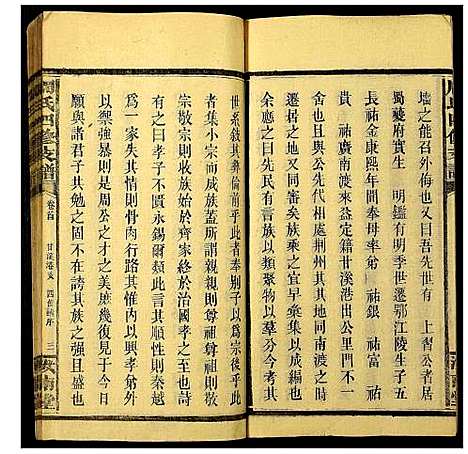 墻之能召外侮也又曰吾先世有 上習公者居
蜀夔府實生 明鑑有明季世遷鄂江陵生子五
長祐金康熙年間奉母率弟 祐銀 祐富 祐
貴 祐廣南渡來益定籍甘溪港出入同井畊不一
遷居之地又同審矣族乘之宜早蕆集以成編也
余應之曰異哉 公先代荊州其地同南渡之時
有以類聚物以其群分
世系敘其彝倫前乎此者奉別子以為宗後乎此
者集小宗而成族蓋所謂親親則尊祖尊祖則敬
宗敬宗則收族始於齊家終於治國孝之時義大
有之曰孝子不匱永錫爾類此言其順性則秦越
為一家孝矣悖則骨肉行路其惟內不失親外可
以禦強暴則是周公之才之美庶幾復見于今矣
願與諸君子共勉之固不在誇其族之強且盛也
周氏四修支譜
卷首
甘溪港支 四修譜序
三
汝南堂